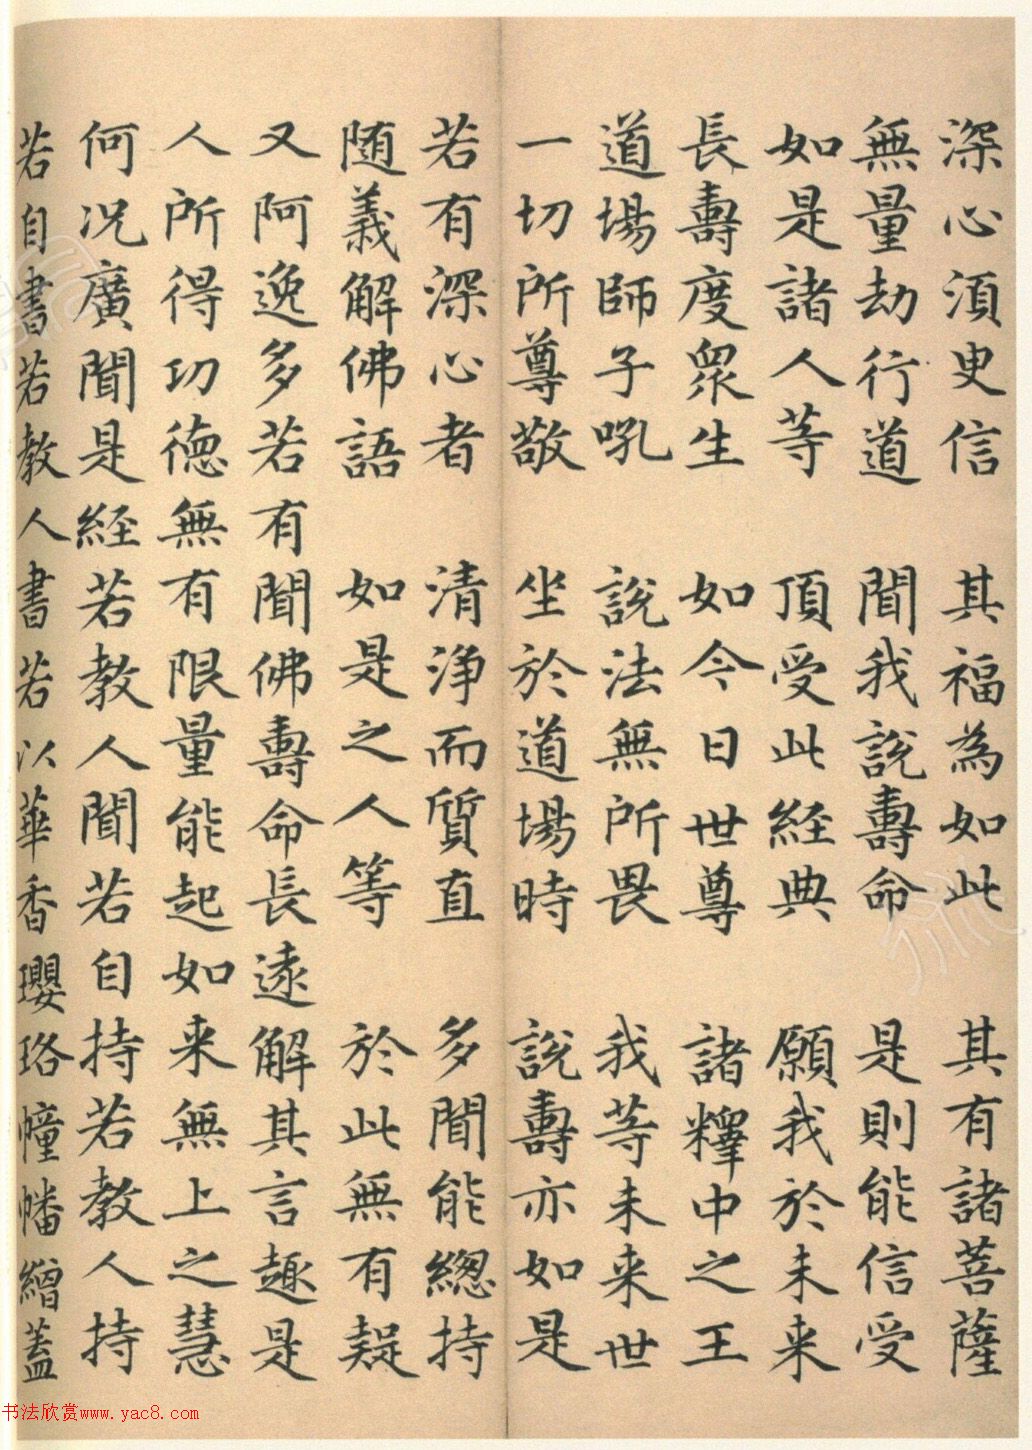 深心須臾信 其福為如此 其有諸菩薩
無量劫行道 聞我說壽命 是則能信受
如是諸人等 頂受此經典 願我於未来
長壽度眾生 如今日世尊 諸釋中之王
道場師子吼 說法無所畏 我等未来世
一切所尊敬 坐於道場時 說壽亦如是
若有深心者 清淨而質直 多聞能緫持
随義解佛語 如是之人等 於此無有疑
又阿逸多若有聞佛壽命長遠解其言趣是
人所得功德無有限量能起如来無上之慧
何况廣聞是經若教人聞若自持若教人持
若自書若教人書若以華香瓔珞幢幡繒蓋
书法欣赏www.yac8.com